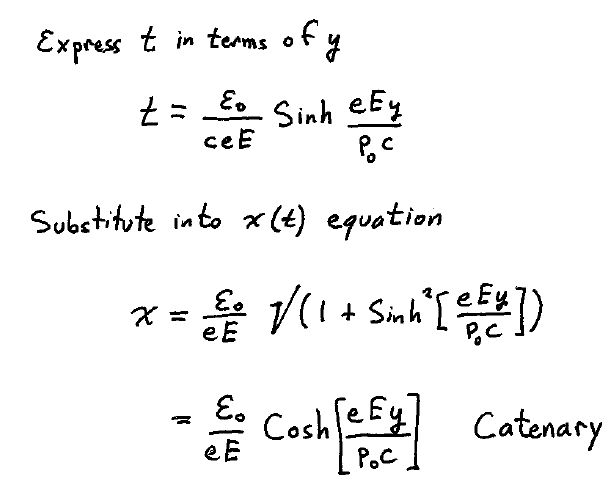 Express t in terms of y
t = ε₀/ceE Sinh eEy/P₀c
Substitute into x(t) equation
x = ε₀/eE √(1 + Sinh²[eEy/P₀c])
= ε₀/eE Cosh[eEy/P₀c] Catenary